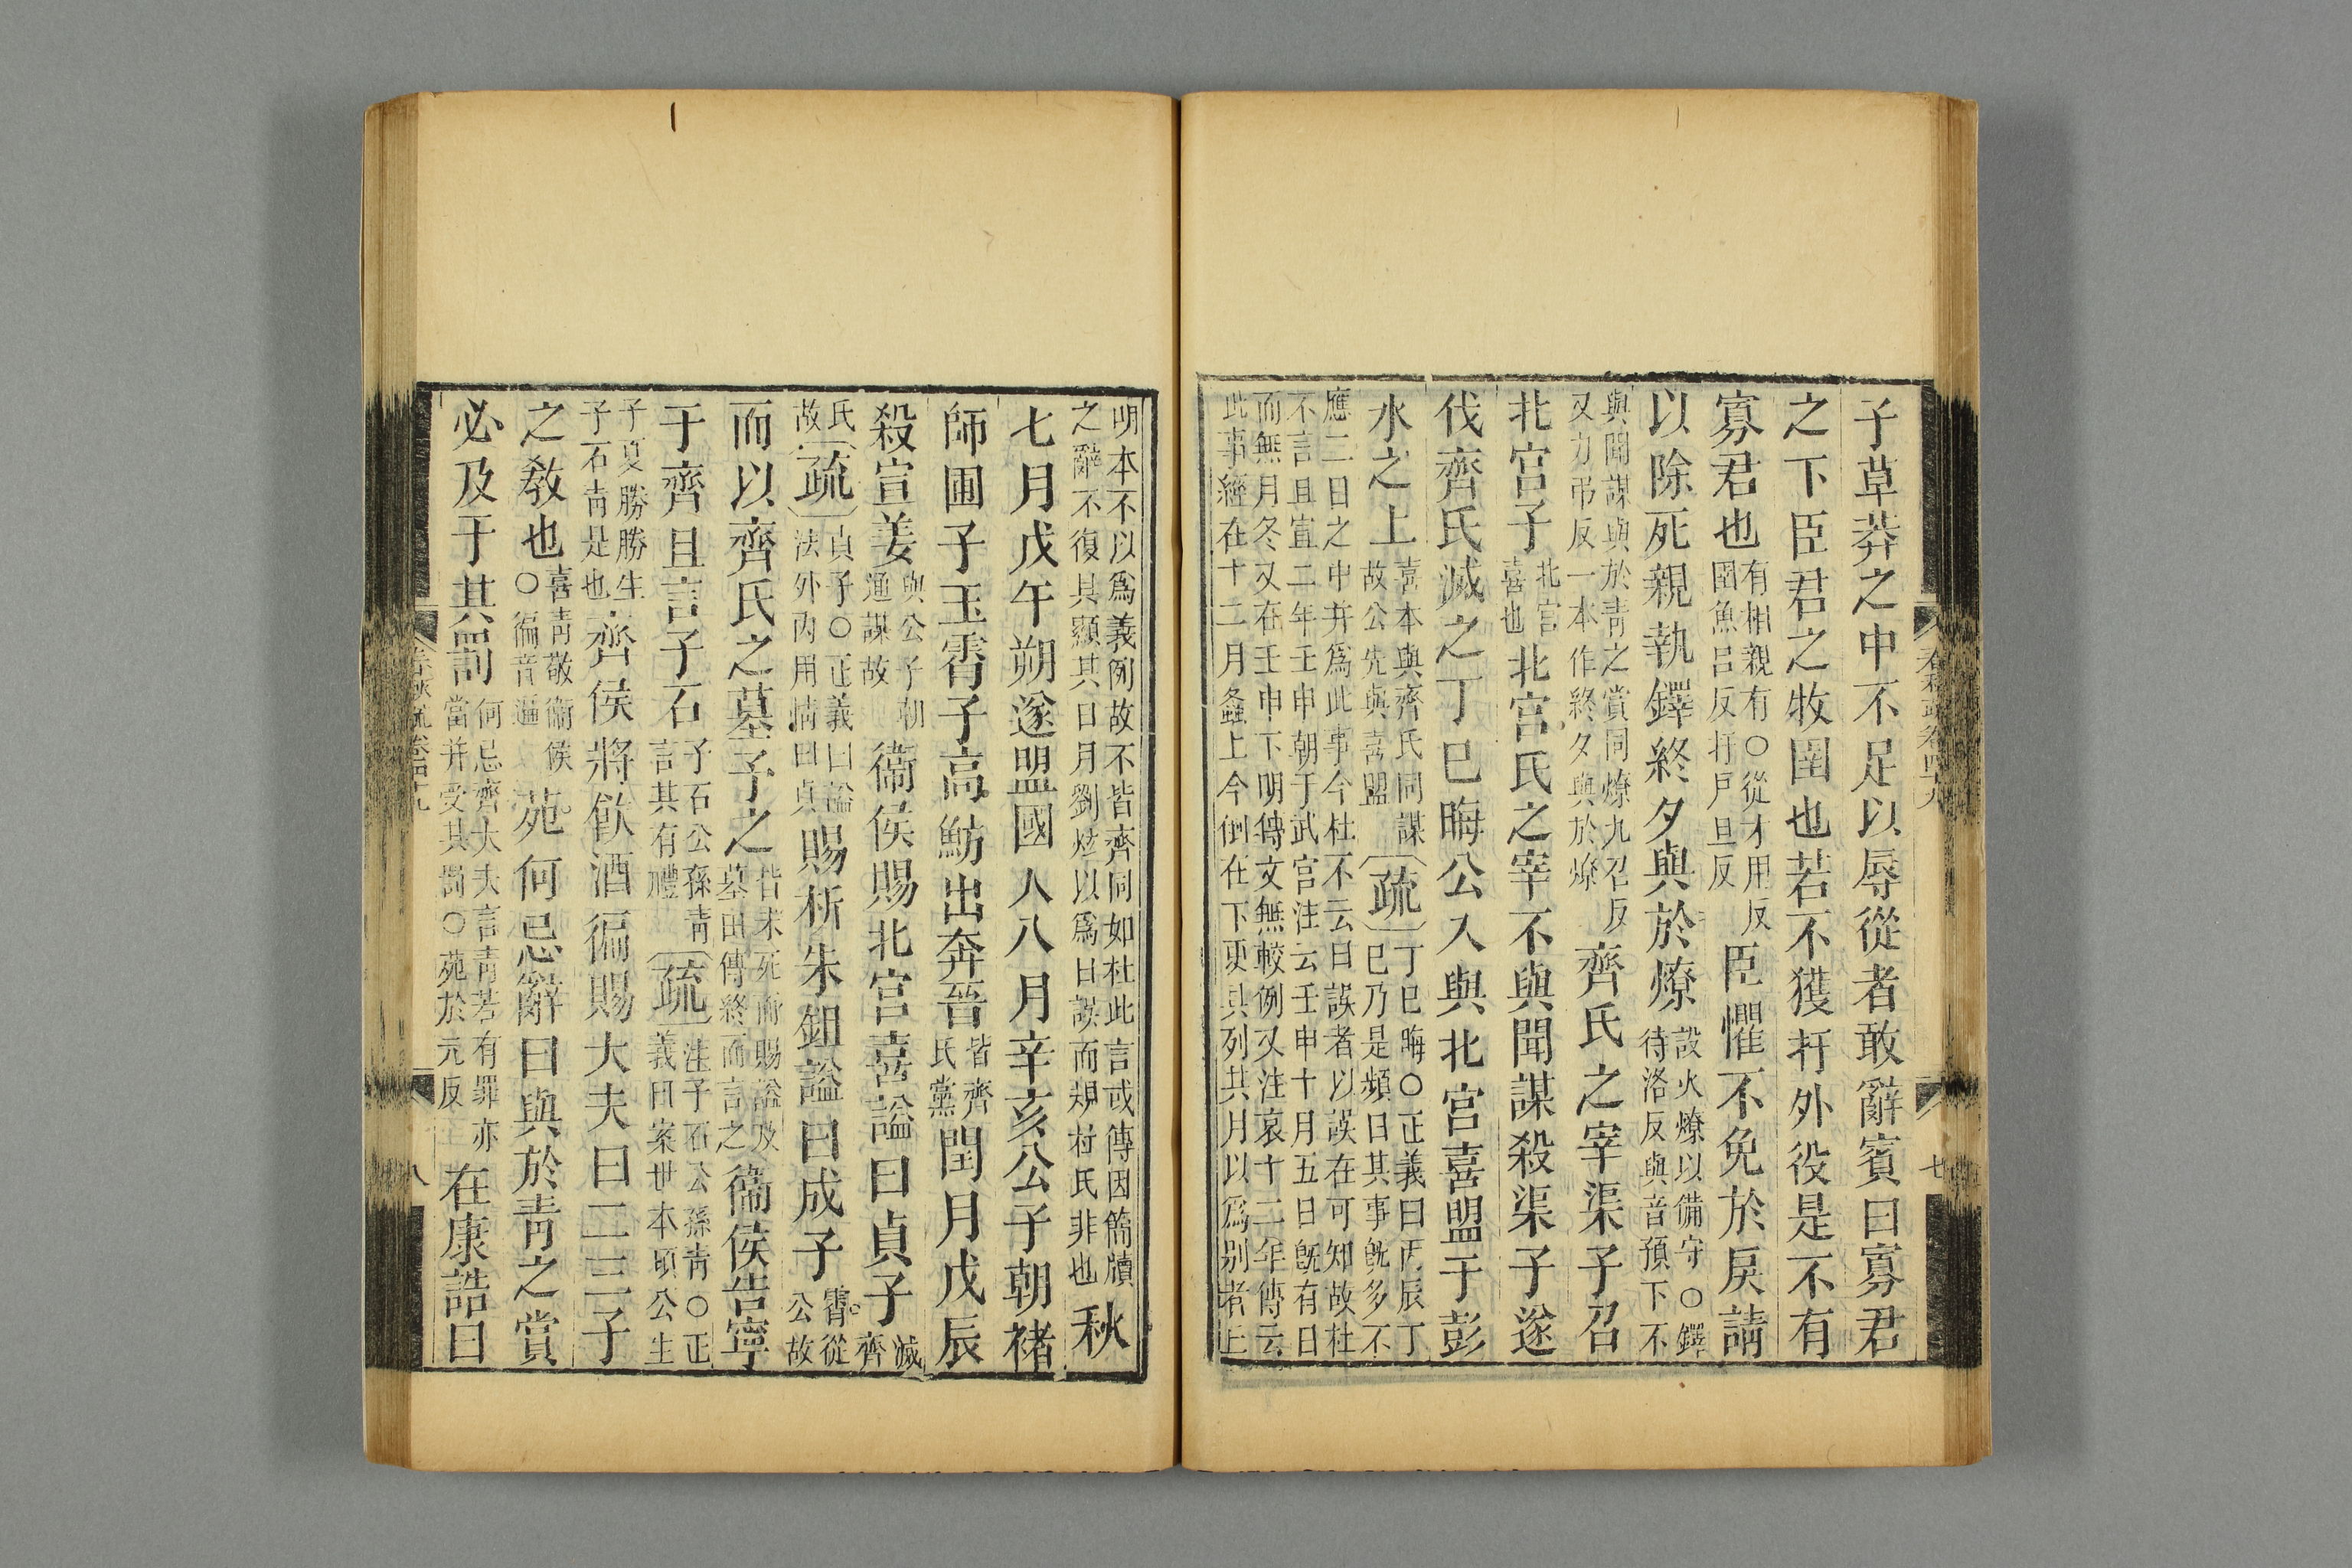 子草莽之中不足以辱從者敢辭賓曰寡君
之下臣君之牧圉也若不獲扞外役是不有
寡君也
有相親有○從才用反
圉魚呂反扞戸旦反
臣懼不免於戾請
以除死親執鐸終夕與於燎
設火燎以備守○鐸
待洛反與音預下不
與聞謀與於靑之賞同燎九召反
又力弔反一本作終夕與於燎
齊氏之宰渠子召
北宮子
北宮
喜也
北宮氏之宰不與聞謀殺渠子遂
伐齊氏滅之丁巳晦公入與北宮喜盟于彭
水之上
喜本與齊氏同謀
故公先與喜盟
疏
丁巳晦○正義曰丙辰丁
巳乃是頻日其事旣多不
應二日之中并爲此事今杜不云日誤者以誤在可知故杜
不言且宣二年壬申朝于武宮注云壬申十月五日旣有日
而無月冬又在壬申下明傳文無較例又注哀十二年傳云
此事經在十二月螽上今倒在下更具列其月以爲别者上
春秋疏卷四十九
七
明本不以爲義例故不皆齊同如杜此言或傳因簡牘
之辭不復具顯其日月劉炫以爲日誤而規杜氏非也
秋
七月戊午朔遂盟國人八月辛亥公子朝褚
師圃子玉霄子高魴出奔晉
皆齊
氏黨
閏月戊辰
殺宣姜
與公子朝
通謀故
衞侯賜北宮喜謚曰貞子
滅
齊
氏
故
疏
貞子○正義曰謚
法外內用情曰貞
賜析朱鉏謚曰成子
霄從
公故
而以齊氏之墓予之
皆未死而賜謚及
墓田傳終而言之
衞侯告寧
于齊且言子石
子石公孫靑
言其有禮
疏
注子石公孫靑○正
義曰案世本頃公生
子夏勝勝生
子石靑是也
齊侯將飮酒徧賜大夫曰二三子
之敎也
喜靑敬衞侯
○徧音遍
苑何忌辭曰與於靑之賞
必及于其罰
何忌齊大夫言靑若有罪亦
當并受其罰○苑於元反
在康誥曰
春秋疏卷四十九
八